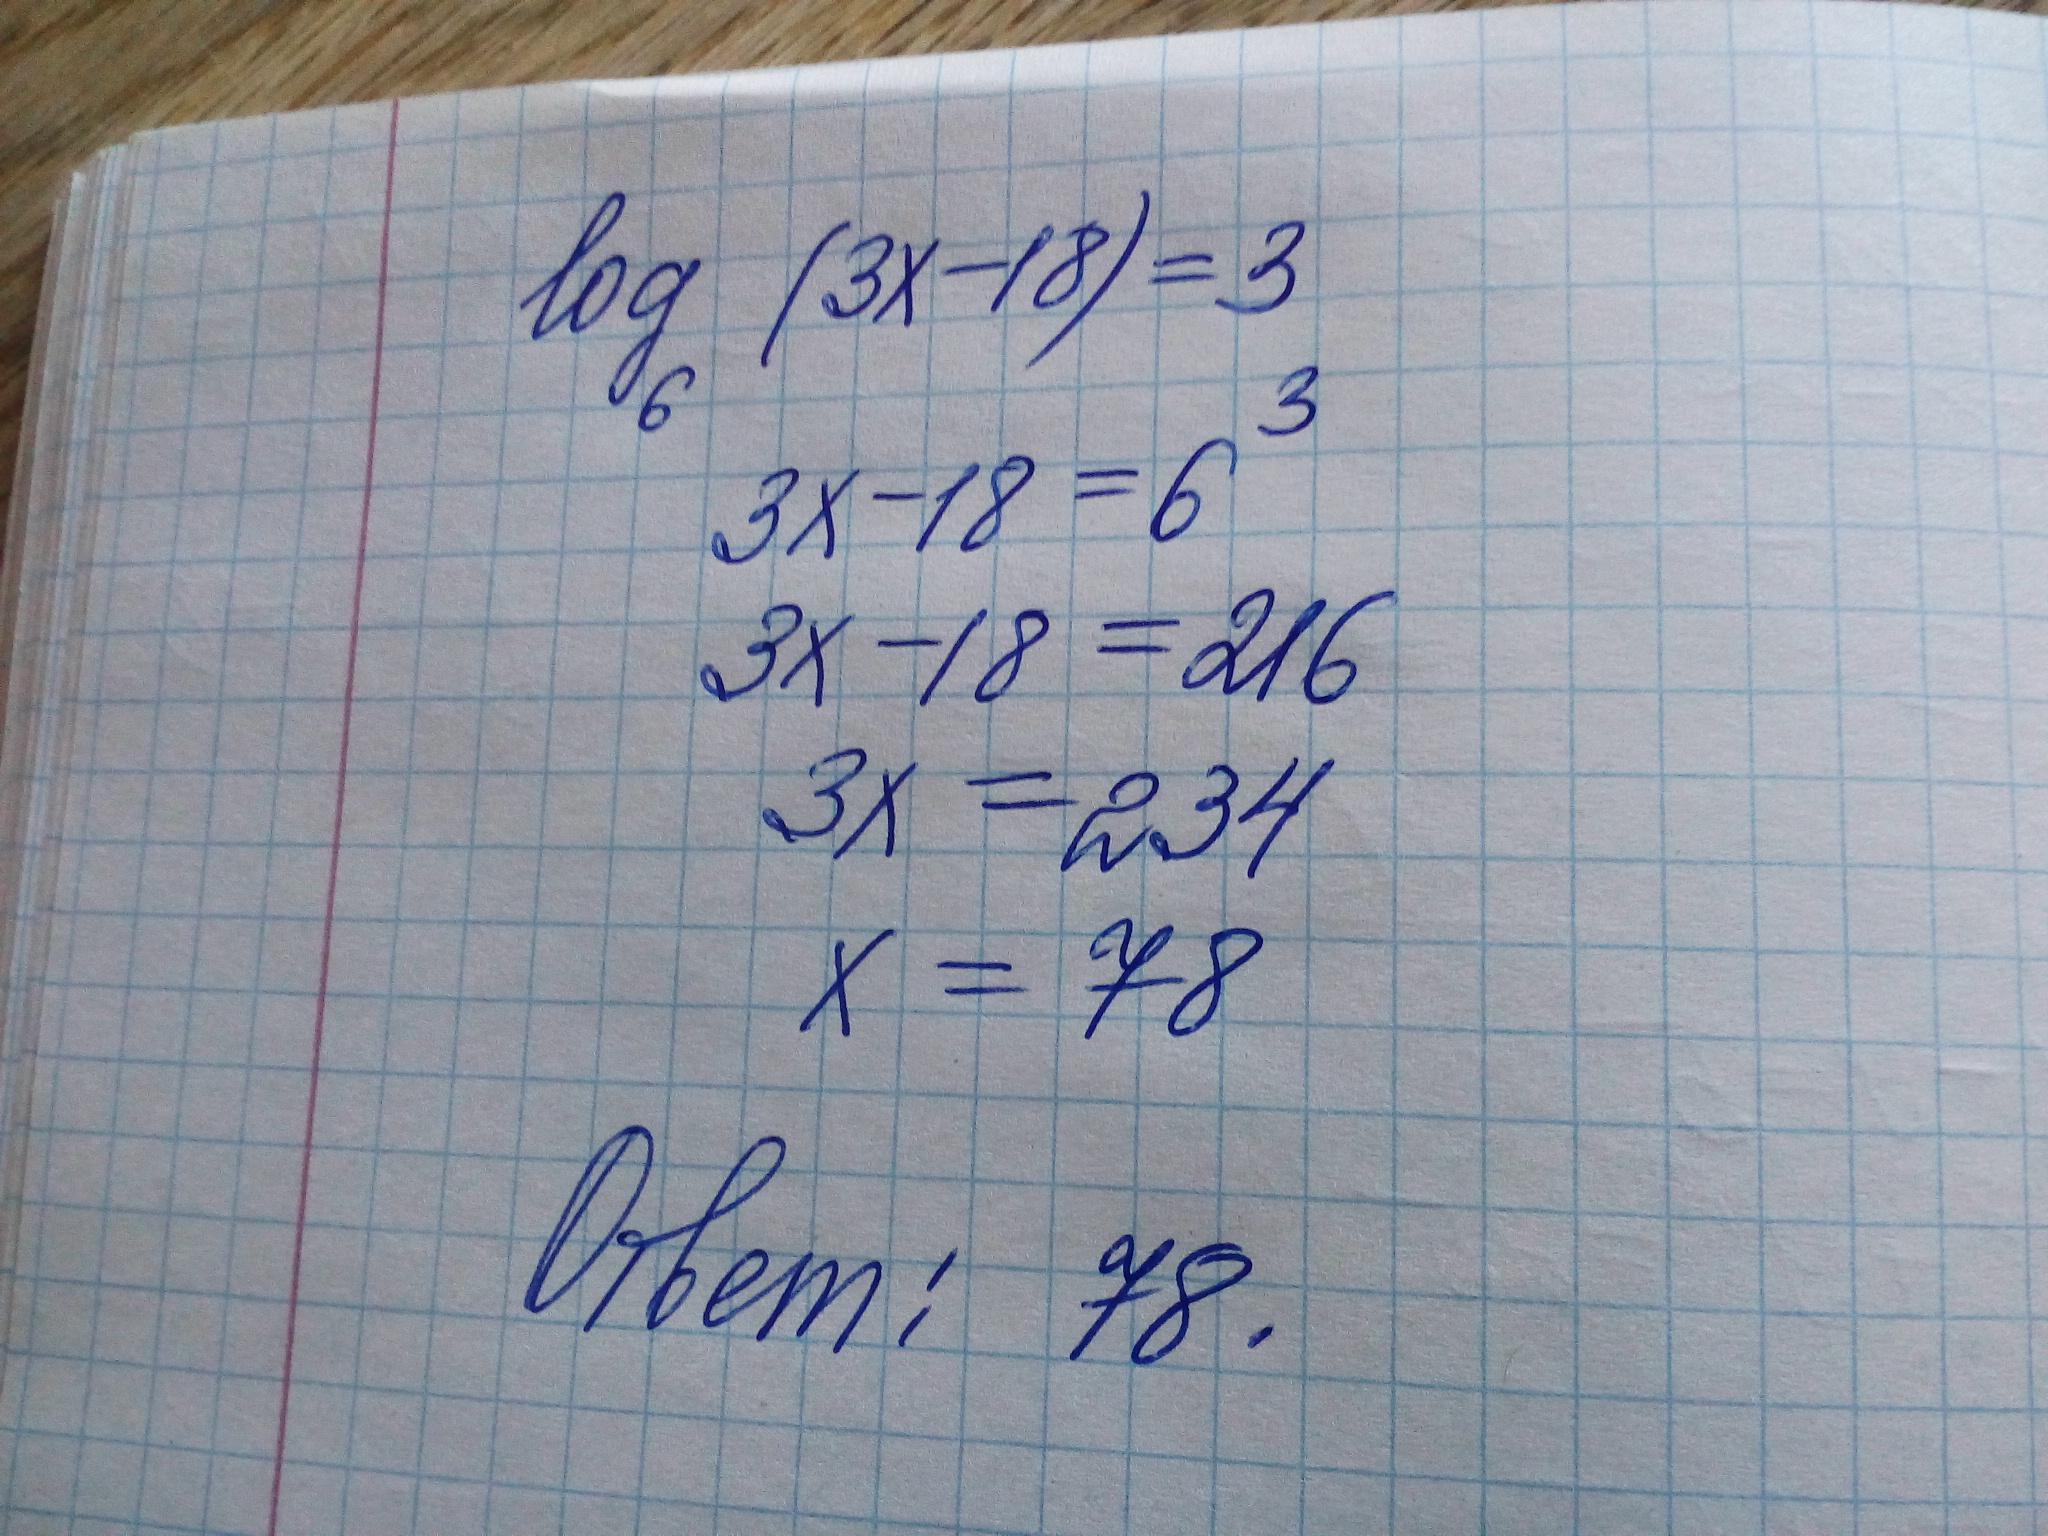 log₆ (3x-18)=3
3x-18=6³
3x-18=216
3x=234
x=78
Ответ: 78.